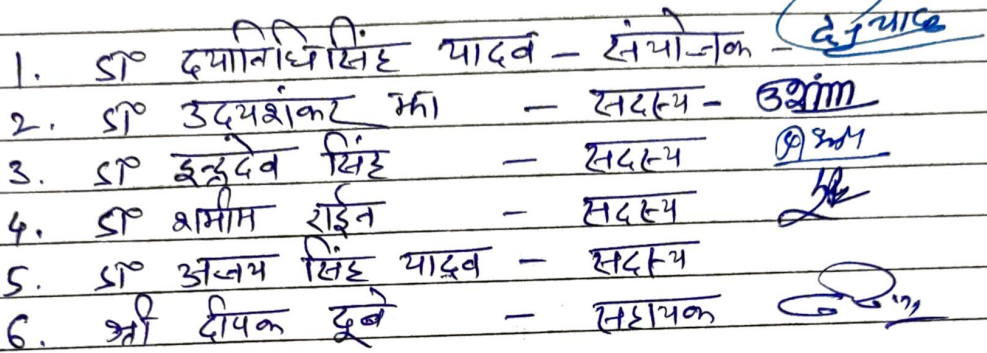 1. डॉ० दयानिधि सिंह यादव - संयोजक -
2. डॉ० उदयशंकर झा - सदस्य -
3. डॉ० इन्द्रदेव सिंह - सदस्य
4. डॉ० शमीम राईन - सदस्य
5. डॉ० अजय सिंह यादव - सदस्य
6. श्री दीपक दूबे - सहायक